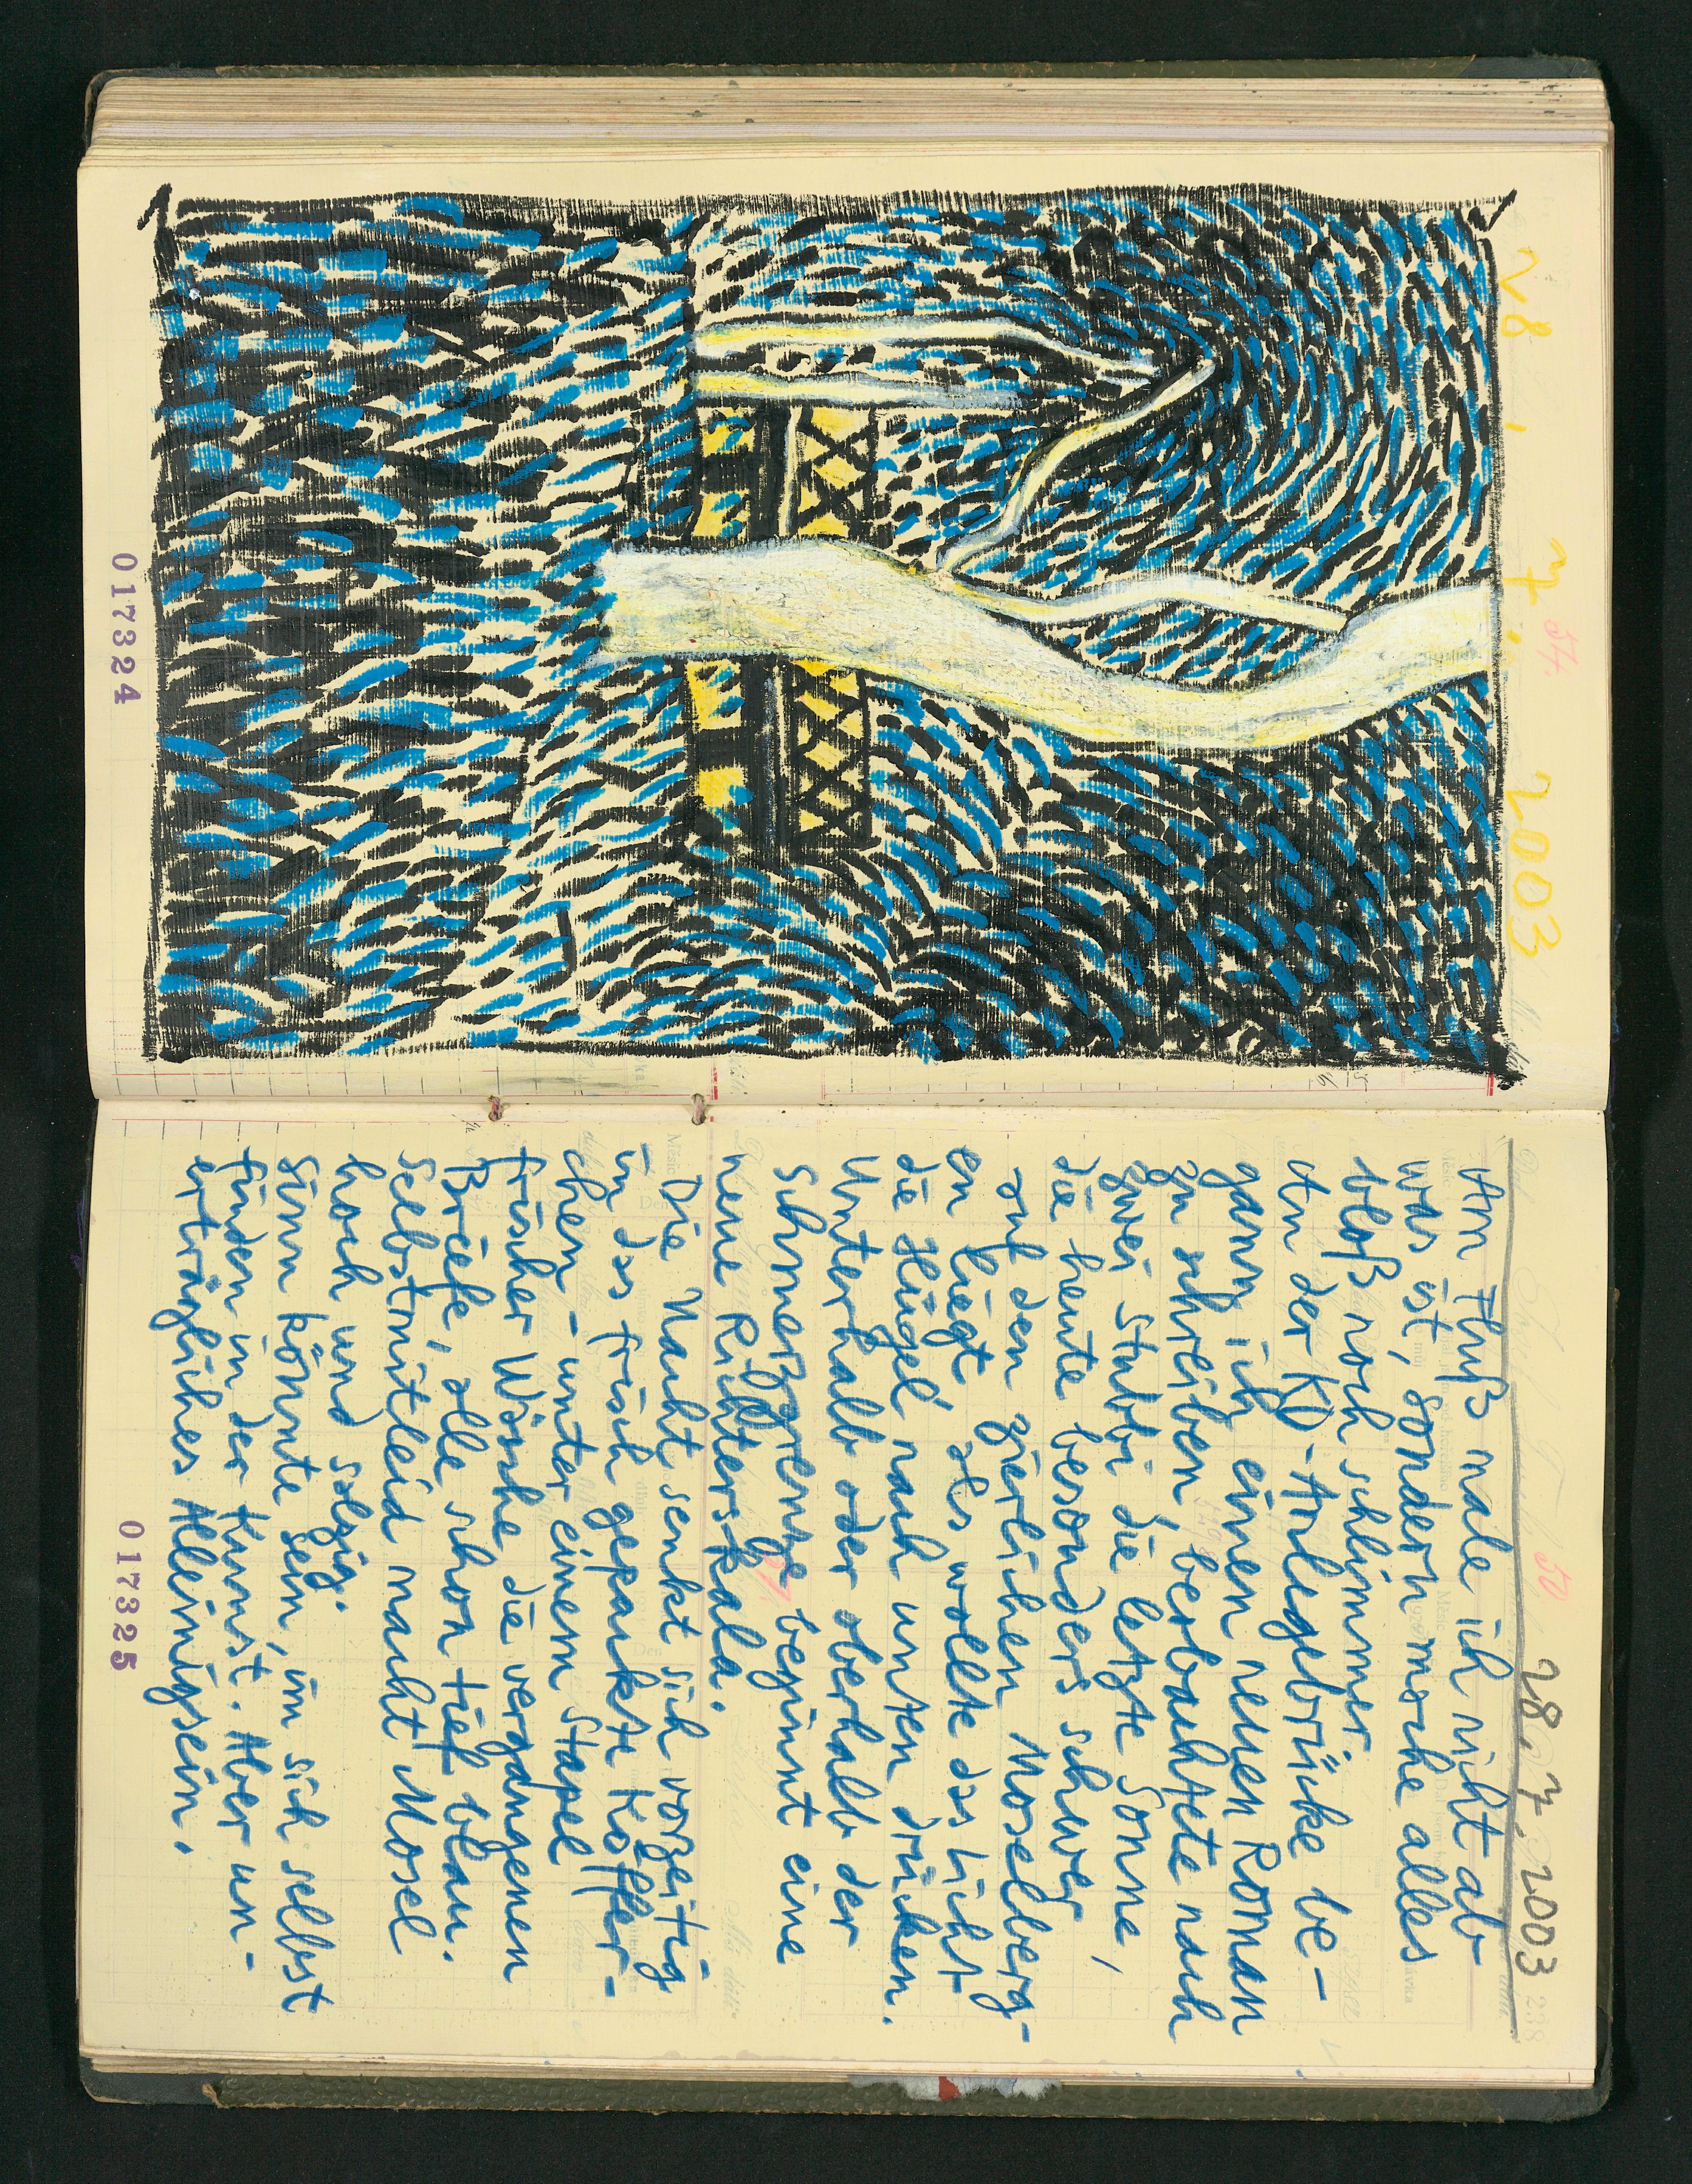 28.7.2003
54
017324
50
28.7.2003
238
Am Fluß male ich nicht ab
was ist, sondern mache alles
bloß noch schlimmer.
An der KD-Anlegebrücke be-
gann ich einen neuen Roman
zu schreiben, beobachtete nach
zwei Stubbi die letzte Sonne,
die heute besonders schwer
auf den zierlichen Moselberg-
en liegt, als wollte das Licht
die Hügel nach unten drücken.
Unterhalb oder oberhalb der
Schmerzgrenze beginnt eine
neue Richterskala.
Die Nacht senkt sich vorzeitig
in das frisch gepackte Köffer-
chen - unter einem Stapel
frischer Wäsche die vergangenen
Briefe, alle schon tief blau.
Selbstmitleid macht Mosel
hoch und salzig.
Sinn könnte sein, in sich selbst
finden in der Kunst. Aber un-
erträgliches Alleinigsein.
017325